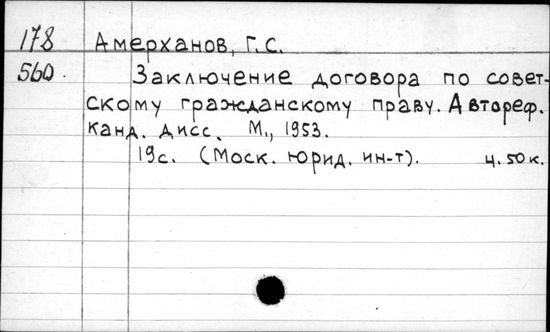 178 Амерханов, Г.С.
560. Заключение договора по совет-
скому гражданскому праву. Автореф.
канд. дисс. М., 1953.
19с. (Моск. юрид. ин-т). ц. 50к.